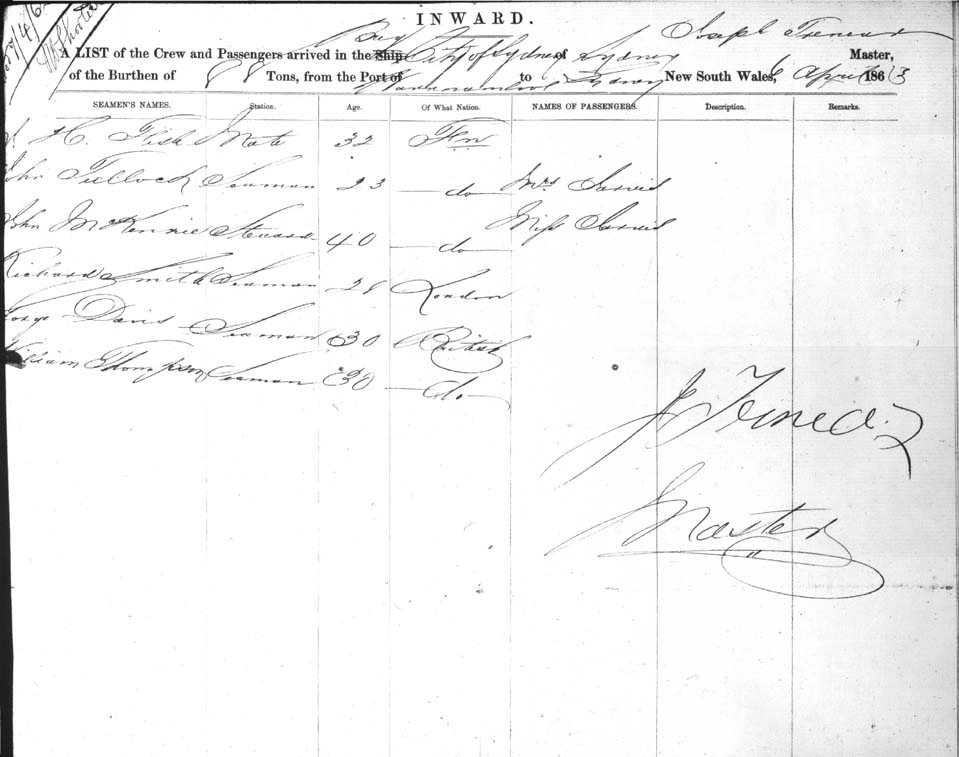 INWARD.
A LIST of the Crew and Passengers arrived in the Ship City of Sydney of Sydney Joseph Master,
of the Burthen of Tons, from the Port of to Sydney New South Wales, 6 April 1863
SEAMEN'S NAMES. Station. Age. Of What Nation. NAMES OF PASSENGERS. Description. Remarks.
H. Fisk Mate 32
John Tulloch Seaman 23 do Mrs Jarvis
John McKennie Steward 40 do Miss Jarvis
Richard Smith Seaman 28 London
George Davis Seaman 30 British
William Thompson Seaman 30 do
J
Master